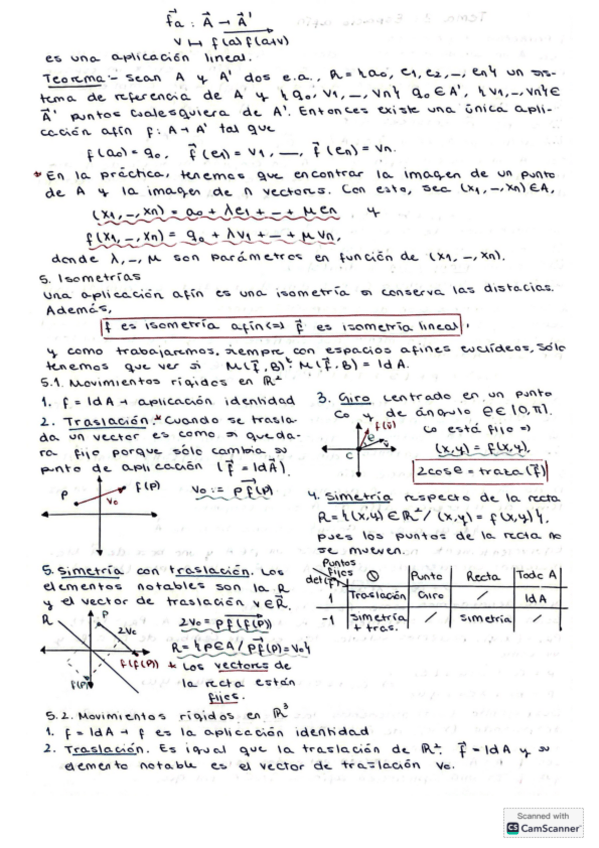 f⃗a : A⃗ → A⃗'
v ↦ f(a)f(a+v)
es una aplicación lineal.
Teorema:- sean A y A' dos e.a., R = {a₀, e₁, e₂, –, en} un sis-
tema de referencia de A y { q₀, v₁, –, vn} q₀ ∈ A', {v₁, –, vn} ∈
A⃗' puntos cualesquiera de A'. Entonces existe una única apli-
cación afín f: A → A' tal que
f(a₀) = q₀, f⃗(e₁) = v₁, —, f⃗(en) = vn.
* En la práctica, tenemos que encontrar la imagen de un punto
de A y la imagen de n vectores. Con esto, sea (x₁, –, xn) ∈ A,
(x₁, –, xn) = a₀ + λe₁ + – + μen y
f(x₁, –, xn) = q₀ + λv₁ + – + μvn,
donde λ, –, μ son parámetros en función de (x₁, –, xn).
5. Isometrías
una aplicación afín es una isometría si conserva las distacias.
Además,
f es isometría afín ⇔ f⃗ es isometría lineal,
y como trabajaremos, siempre con espacios afines euclídeos, sólo
tenemos que ver si M(f⃗, B)ᵗ M(f⃗, B) = IdA.
5.1. Movimientos rígidos en ℝ²
1. f = IdA → aplicación identidad
2. Traslación.* Cuando se trasla
da un vector es como si queda-
ra fijo porque sólo cambia su
punto de aplicación (f⃗ = IdA⃗).
P f(P) v₀
v₀ := Pf(P)
3. Giro centrado en un punto
C₀ y de ángulo θ ∈ [0, π].
C₀ está fijo ⇒
(x,y) = f(x,y).
2cosθ = traza(f⃗)
C θ f(v⃗)
4. Simetría respecto de la recta
R = {(x,y) ∈ ℝ² / (x,y) = f(x,y)},
pues los puntos de la recta no
se mueven.
5. Simetría con traslación. Los
elementos notables son la R
y el vector de traslación v ∈ R⃗.
R P 2v₀ f(f(P)) f(P)
2v₀ = Pf(f(P))
R = {p ∈ A / Pf(P) = v₀}
* Los vectores de
la recta están
fijos.
Puntos fijos det(f) | ∅ | Punto | Recta | Todo A
1 | Traslación | Giro | / | IdA
-1 | Simetría + tras. | / | Simetría | /
5.2. Movimientos rígidos en ℝ³
1. f = IdA → f es la aplicación identidad
2. Traslación. Es igual que la traslación de ℝ². f⃗ = IdA y su
elemento notable es el vector de traslación v₀.
Scanned with
CS CamScanner